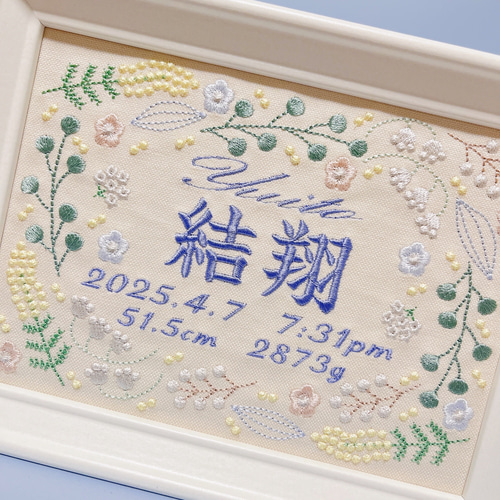 Yuito
結翔
2025.4.7 7:31pm
51.5cm 2873g